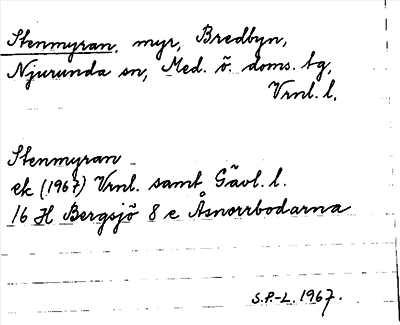 Stenmyran, myr, Bredbyn,
Njurunda sn, Med. ö. doms. tg,
Vrnl. l.
Stenmyran
ek (1967) Vrnl. samt Gävl. l.
16 H Bergsjö 8 e Åsnorrbodarna
S.P-L. 1967.